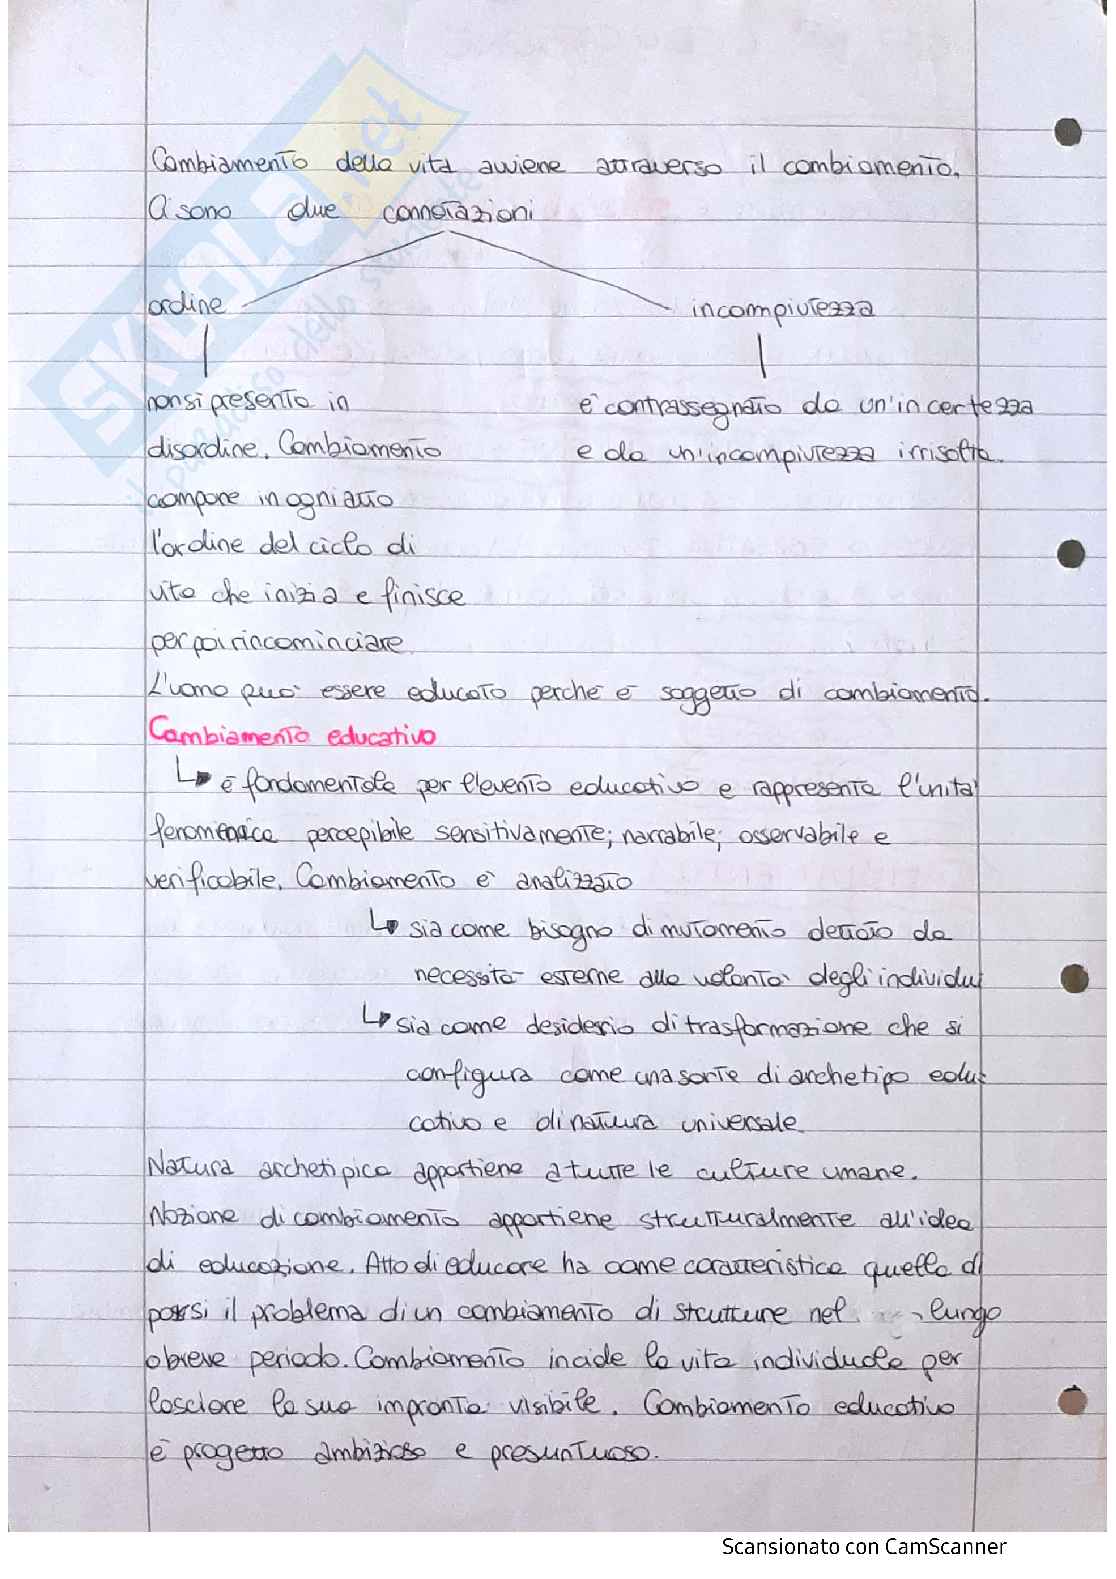 Cambiamento della vita avviene attraverso il cambiamento.
Ci sono due connotazioni
ordine
incompiutezza
non si presenta in
disordine. Cambiamento
compone in ogni atto
l'ordine del ciclo di
vita che inizia e finisce
per poi rincominciare.
è contrassegnato da un'incertezza
e da un'incompiutezza irrisolta.
L'uomo può essere educato perché è soggetto di cambiamento.
Cambiamento educativo
è fondamentale per l'evento educativo e rappresenta l'unità
fenomenica percepibile sensitivamente; narrabile; osservabile e
verificabile. Cambiamento è analizzato
sia come bisogno di mutamento dettato da
necessità esterne alla volontà degli individui
sia come desiderio di trasformazione che si
configura come una sorte di archetipo edu
cativo e di natura universale.
Natura archetipica appartiene a tutte le culture umane.
Nozione di cambiamento appartiene strutturalmente all'idea
di educazione. Atto di educare ha come caratteristica quella di
porsi il problema di un cambiamento di strutture nel lungo
o breve periodo. Cambiamento incide la vita individuale per
lasciare la sua impronta visibile. Cambiamento educativo
è progetto ambizioso e presuntuoso.
SKUOLA.net
il paradiso dello studente
Scansionato con CamScanner